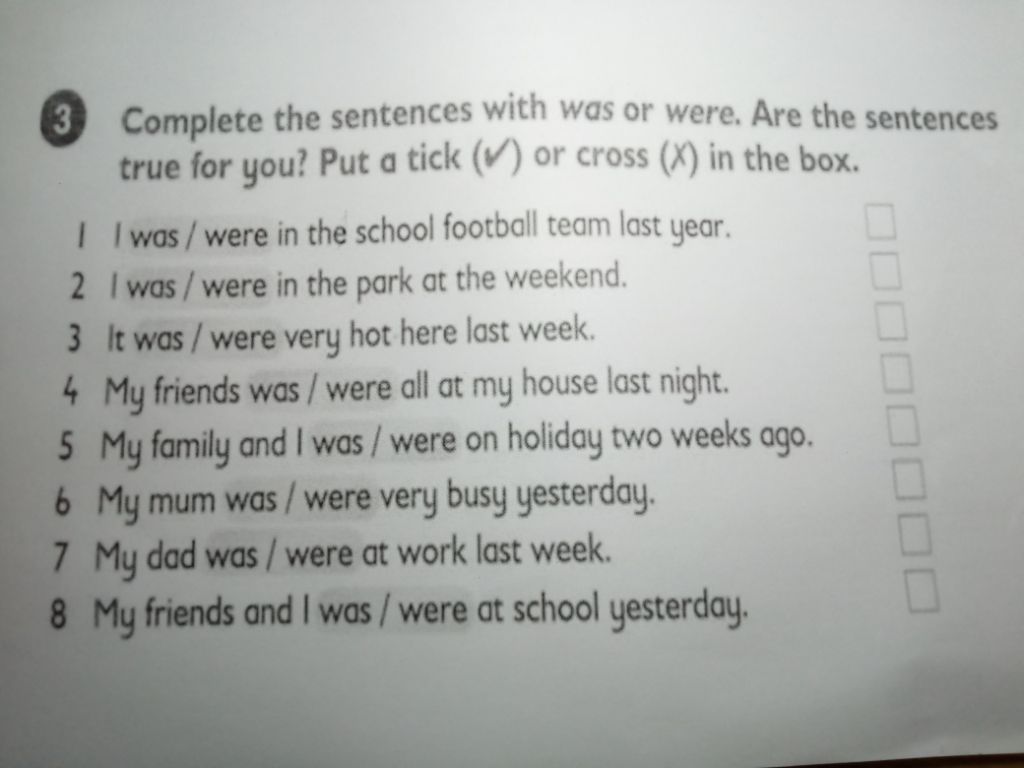 3 Complete the sentences with was or were. Are the sentences
true for you? Put a tick (✓) or cross (✗) in the box.
1 I was / were in the school football team last year.
2 I was / were in the park at the weekend.
3 It was / were very hot here last week.
4 My friends was / were all at my house last night.
5 My family and I was / were on holiday two weeks ago.
6 My mum was / were very busy yesterday.
7 My dad was / were at work last week.
8 My friends and I was / were at school yesterday.